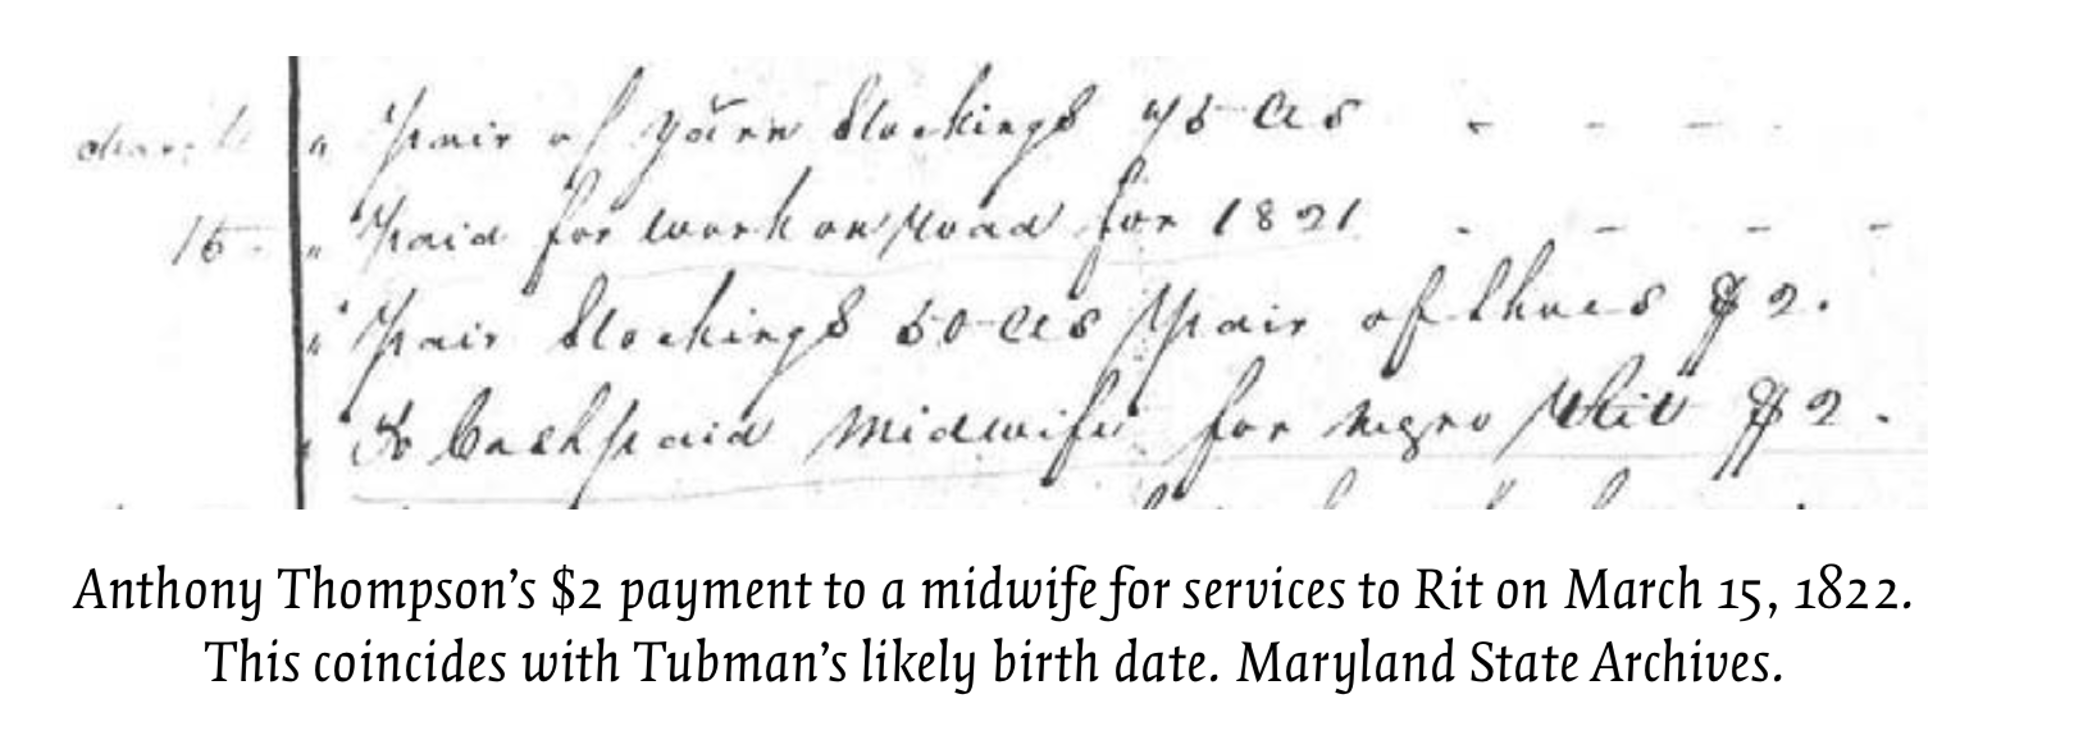 March " pair of yarn Stockings 75 Cts - - - -
15 - " paid for work on Road for 1821 - - - -
" pair Stockings 50 Cts pair of Shoes $2.
" To Cash paid Midwife for negro Rhit $2.
Anthony Thompson’s $2 payment to a midwife for services to Rit on March 15, 1822.
This coincides with Tubman’s likely birth date. Maryland State Archives.